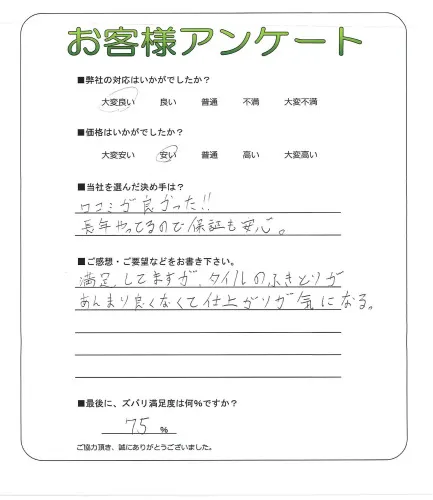 お客様アンケート
■弊社の対応はいかがでしたか?
大変良い 良い 普通 不満 大変不満
■価格はいかがでしたか?
大変安い 安い 普通 高い 大変高い
■当社を選んだ決め手は?
口コミが良かった!!
長年やってるので保証も安心。
■ご感想・ご要望などをお書き下さい。
満足してますが、タイルのふきとりが
あんまり良くなくて仕上がりが気になる。
■最後に、ズバリ満足度は何%ですか?
75 %
ご協力頂き、誠にありがとうございました。